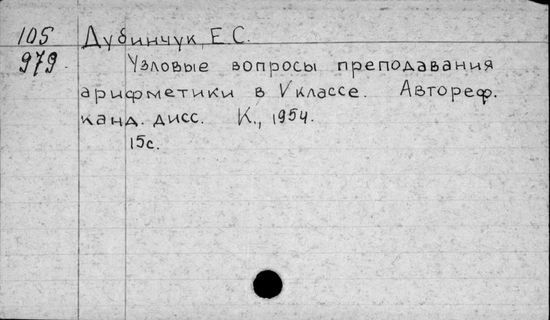 105 Дубинчук, Е.С.
979. Узловые вопросы преподавания
арифметики в V классе. Автореф.
канд. дисс. К., 1954.
15с.